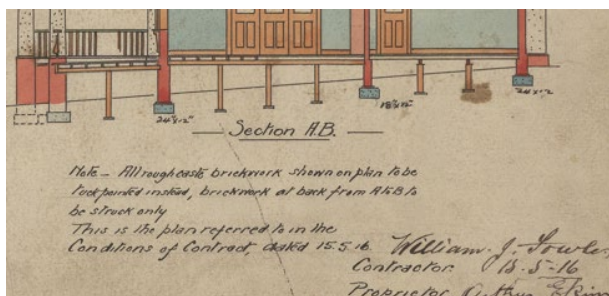 24"x12"
18"x12"
24"x12"
Section A.B.
Note - All roughcaste brickwork shown on plan to be
tuckpointed instead, brickwork at back from A to B to
be struck only
This is the plan referred to in the
Conditions of Contract, dated 15.5.16
William J. Fowler
Contractor. 15-5-16
Proprietor Arthur